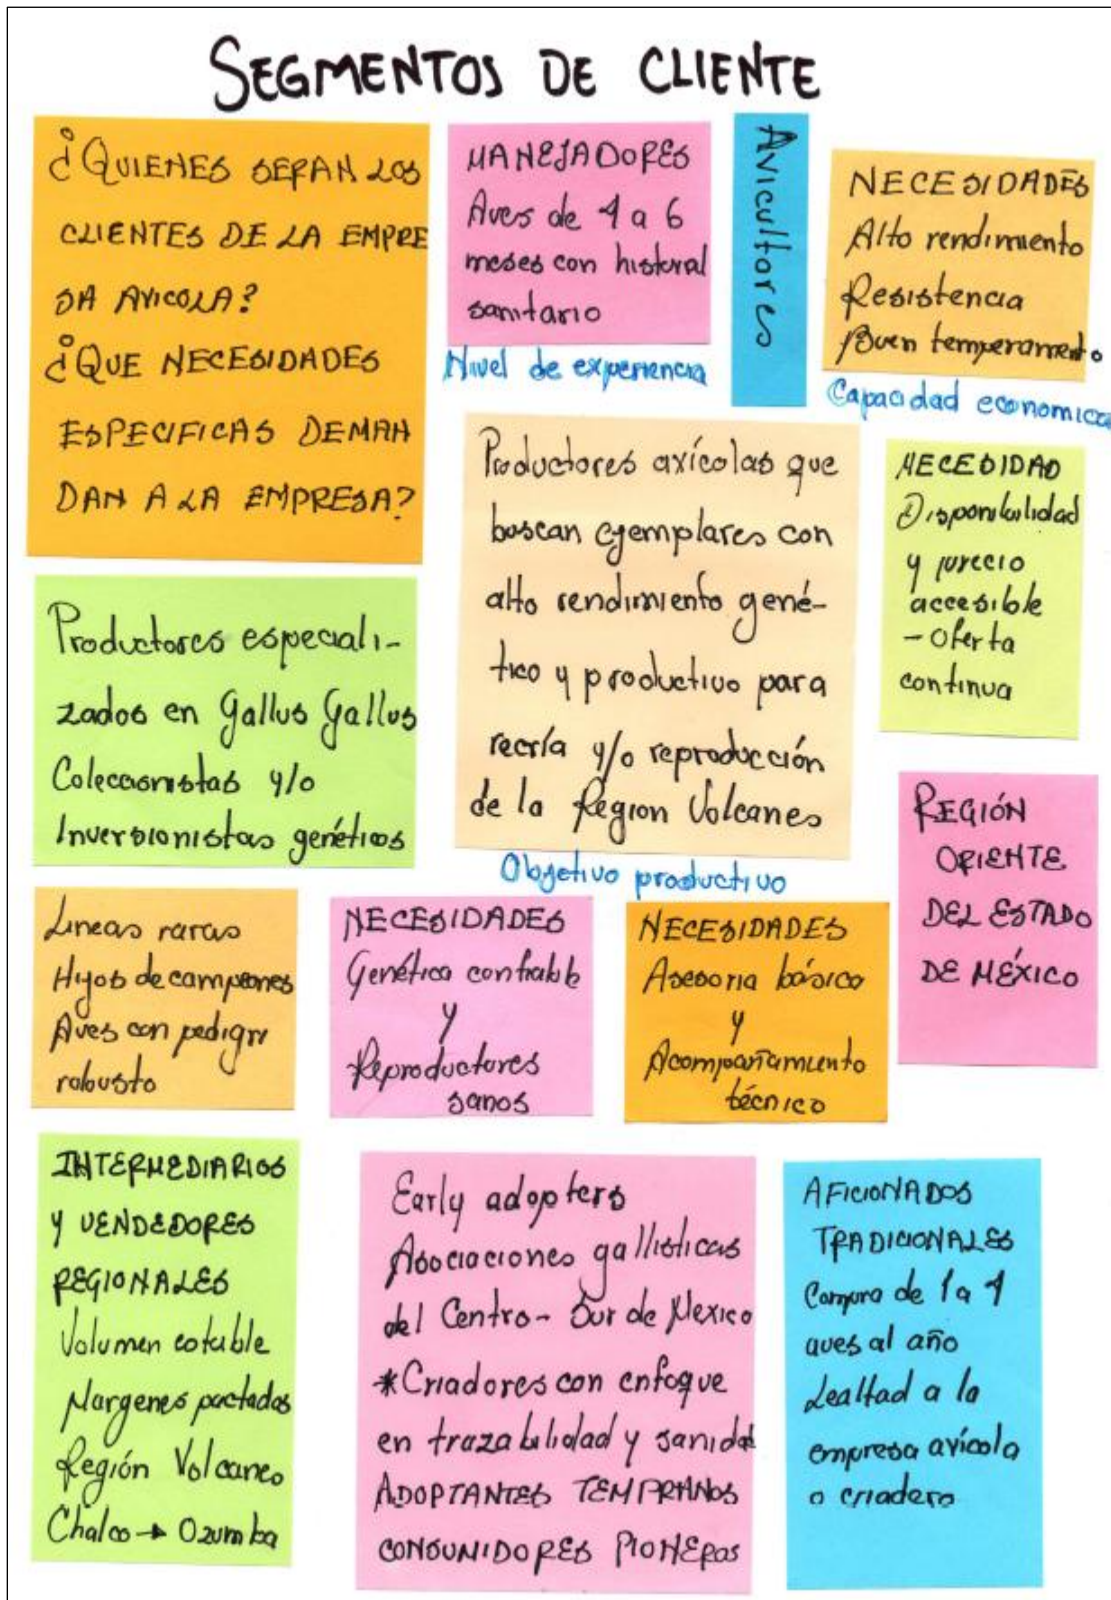 SEGMENTOS DE CLIENTE
¿QUIENES SERAN LOS
CLIENTES DE LA EMPRE
SA AVICOLA?
¿QUE NECESIDADES
ESPECIFICAS DEMAN
DAN A LA EMPRESA?
MANEJADORES
Aves de 4 a 6
meses con historial
sanitario
Nivel de experiencia
Avicultores
NECESIDADES
Alto rendimiento
Resistencia
Buen temperamento
Capacidad economica
Productores avícolas que
buscan ejemplares con
alto rendimiento gené-
tico y productivo para
recría y/o reproducción
de la Region Volcanes
Objetivo productivo
NECESIDAD
Disponibilidad
y precio
accesible
- Oferta
continua
Productores especiali-
zados en Gallus Gallus
Coleccionistas y/o
Inversionistas genéticos
REGIÓN
ORIENTE
DEL ESTADO
DE MÉXICO
Lineas raras
Hijos de campeones
Aves con pedigri
robusto
NECESIDADES
Genética confiable
y
Reproductores
sanos
NECESIDADES
Asesoria básica
y
Acompañamiento
técnico
INTERMEDIARIOS
Y VENDEDORES
REGIONALES
Volumen estable
Margenes pactados
Región Volcanes
Chalco → Ozumba
Early adopters
Asociaciones gallisticas
del Centro - Sur de Mexico
*Criadores con enfoque
en trazabilidad y sanidad
ADOPTANTES TEMPRANOS
CONSUMIDORES PIONEROS
AFICIONADOS
TRADICIONALES
Compra de 1 a 4
aves al año
Lealtad a la
empresa avícola
o criadero